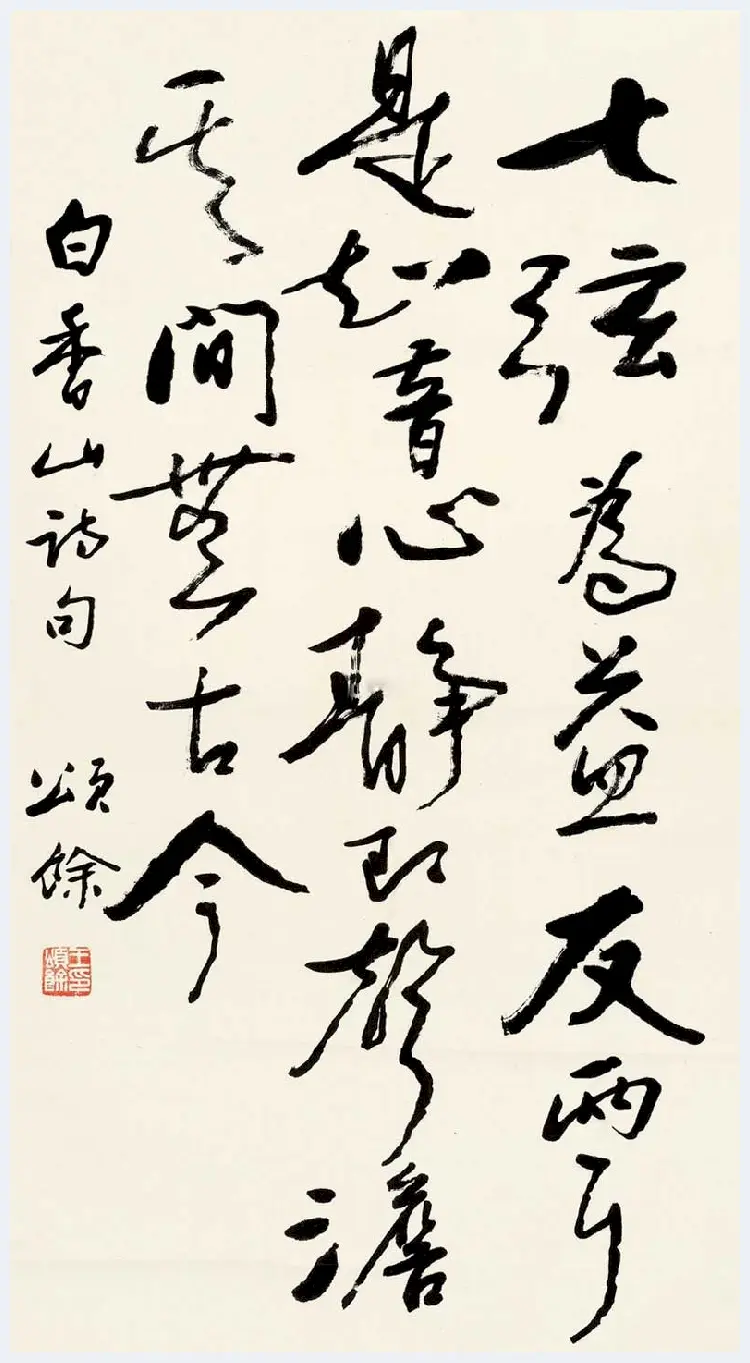 七弦為益友兩耳
是知音心靜即聲澹
其間無古今
白香山詩句 頌餘
王印頌餘